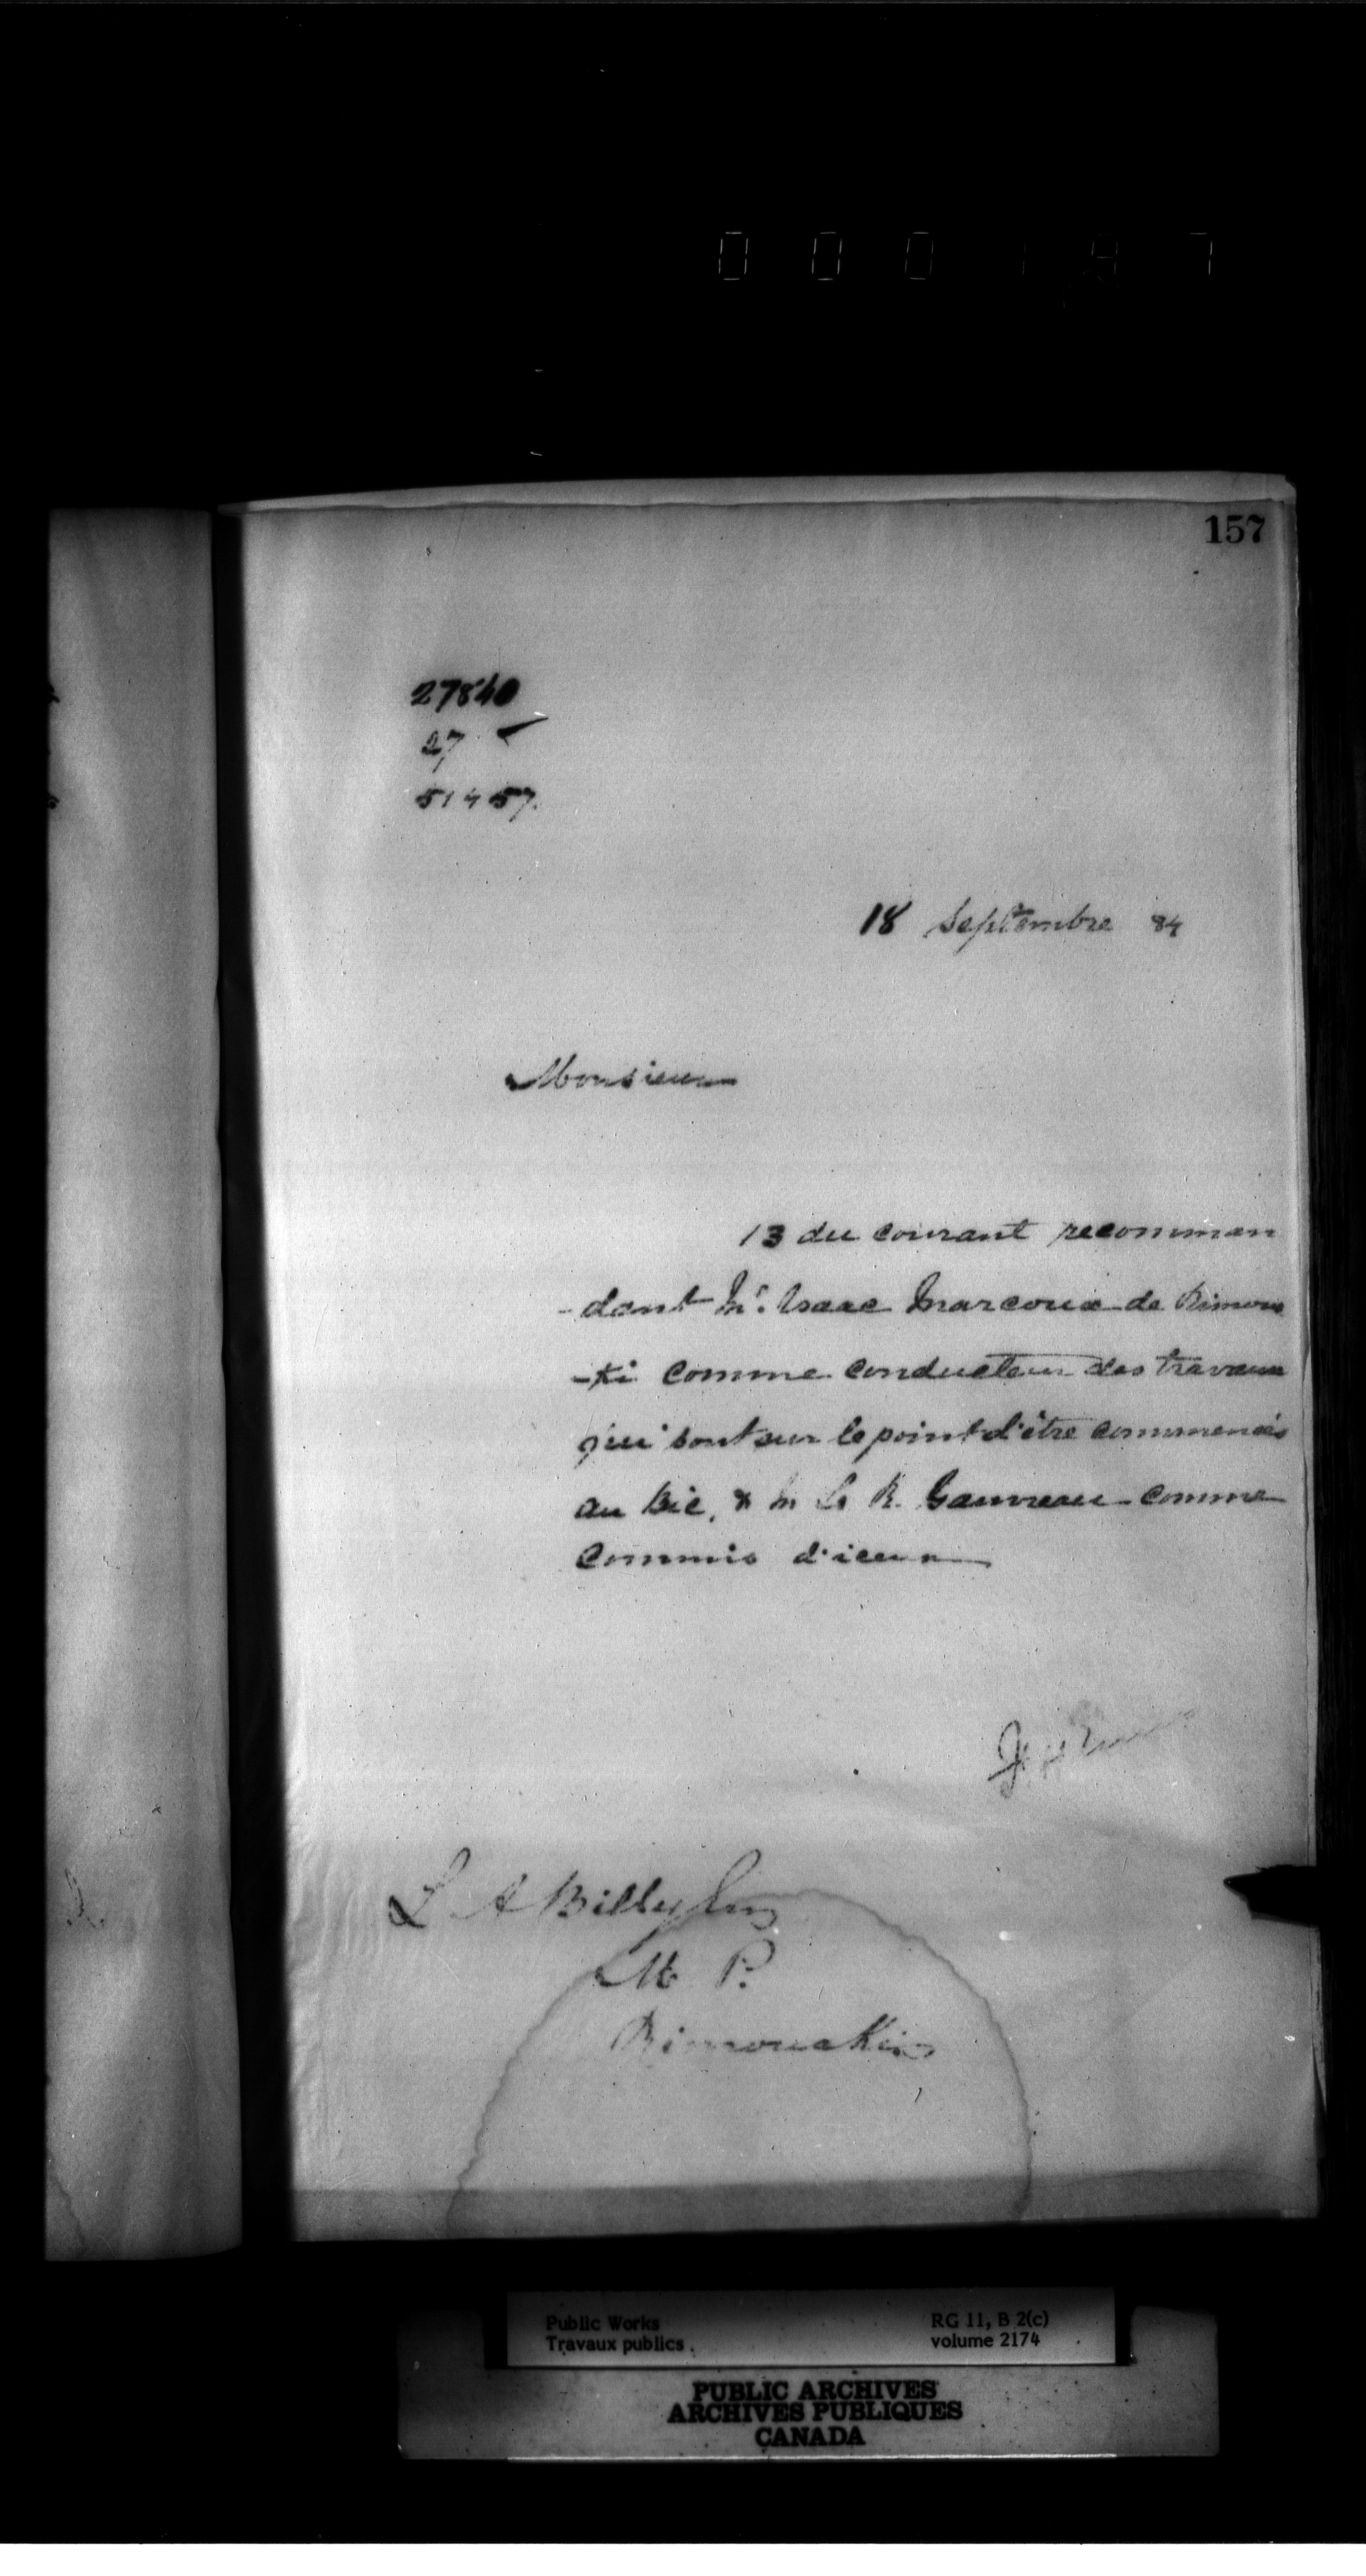 000187
157
27840
27
51457.
18 Septembre 84
Monsieur
13 du courant recomman
-dant Mr. Isaac Marcoux de Rimous
-ki comme conducteur des travaux
qui sont sur le point d'être commencés
au Bic, & M L. R. Gauvreau comme
commis d'iceux
L A Billy Esq
M. P.
Rimouski
Public Works
Travaux publics
RG 11, B 2(c)
volume 2174
PUBLIC ARCHIVES
ARCHIVES PUBLIQUES
CANADA